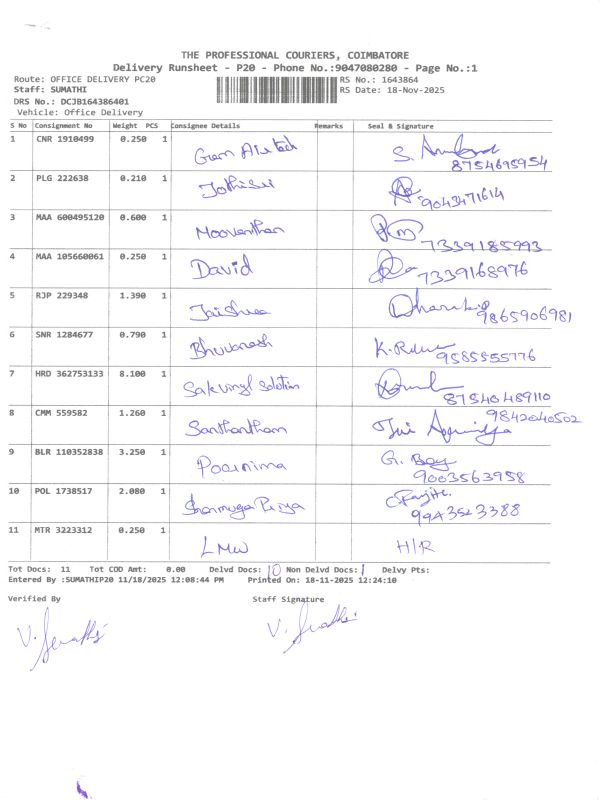 THE PROFESSIONAL COURIERS, COIMBATORE
Delivery Runsheet - P20 - Phone No.:9047080280 - Page No.:1
Route: OFFICE DELIVERY PC20 RS No.: 1643864
Staff: SUMATHI RS Date: 18-Nov-2025
DRS No.: DCJB164386401
Vehicle: Office Delivery
S No Consignment No Weight PCS Consignee Details Remarks Seal & Signature
1 CNR 1910499 0.250 1 Gem S.
8754695954
2 PLG 222638 0.210 1 Jothisri
9043471614
3 MAA 600495120 0.600 1 Mooventhan
7339185993
4 MAA 105660061 0.250 1 David
7339168976
5 RJP 229348 1.390 1 Jaishree
9865906981
6 SNR 1284677 0.790 1 Bhuvanesh K.
9585555776
7 HRD 362753133 8.100 1
87540489110
8 CMM 559582 1.260 1 Santhantham 9842040502
9 BLR 110352838 3.250 1 Poornima G. Boy
9003563958
10 POL 1738517 2.080 1 Shanmuga Priya
9943523388
11 MTR 3223312 0.250 1 LMW H/R
Tot Docs: 11 Tot COD Amt: 0.00 Delvd Docs: 10 Non Delvd Docs: 1 Delvy Pts:
Entered By :SUMATHIP20 11/18/2025 12:08:44 PM Printed On: 18-11-2025 12:24:10
Verified By Staff Signature
V. V.